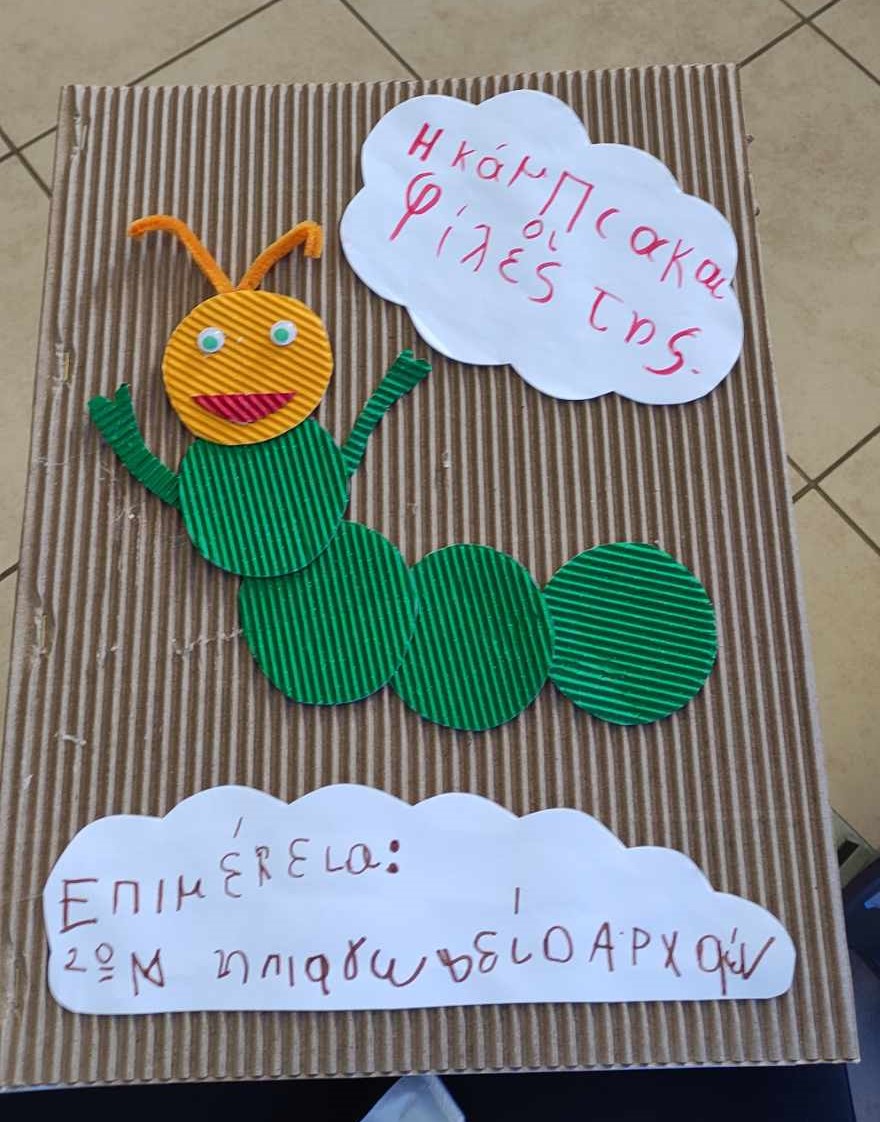 Η κάμπια και
οι
φίλες της.
Επιμέλεια:
2º Νηπιαγωγείο Αρχα